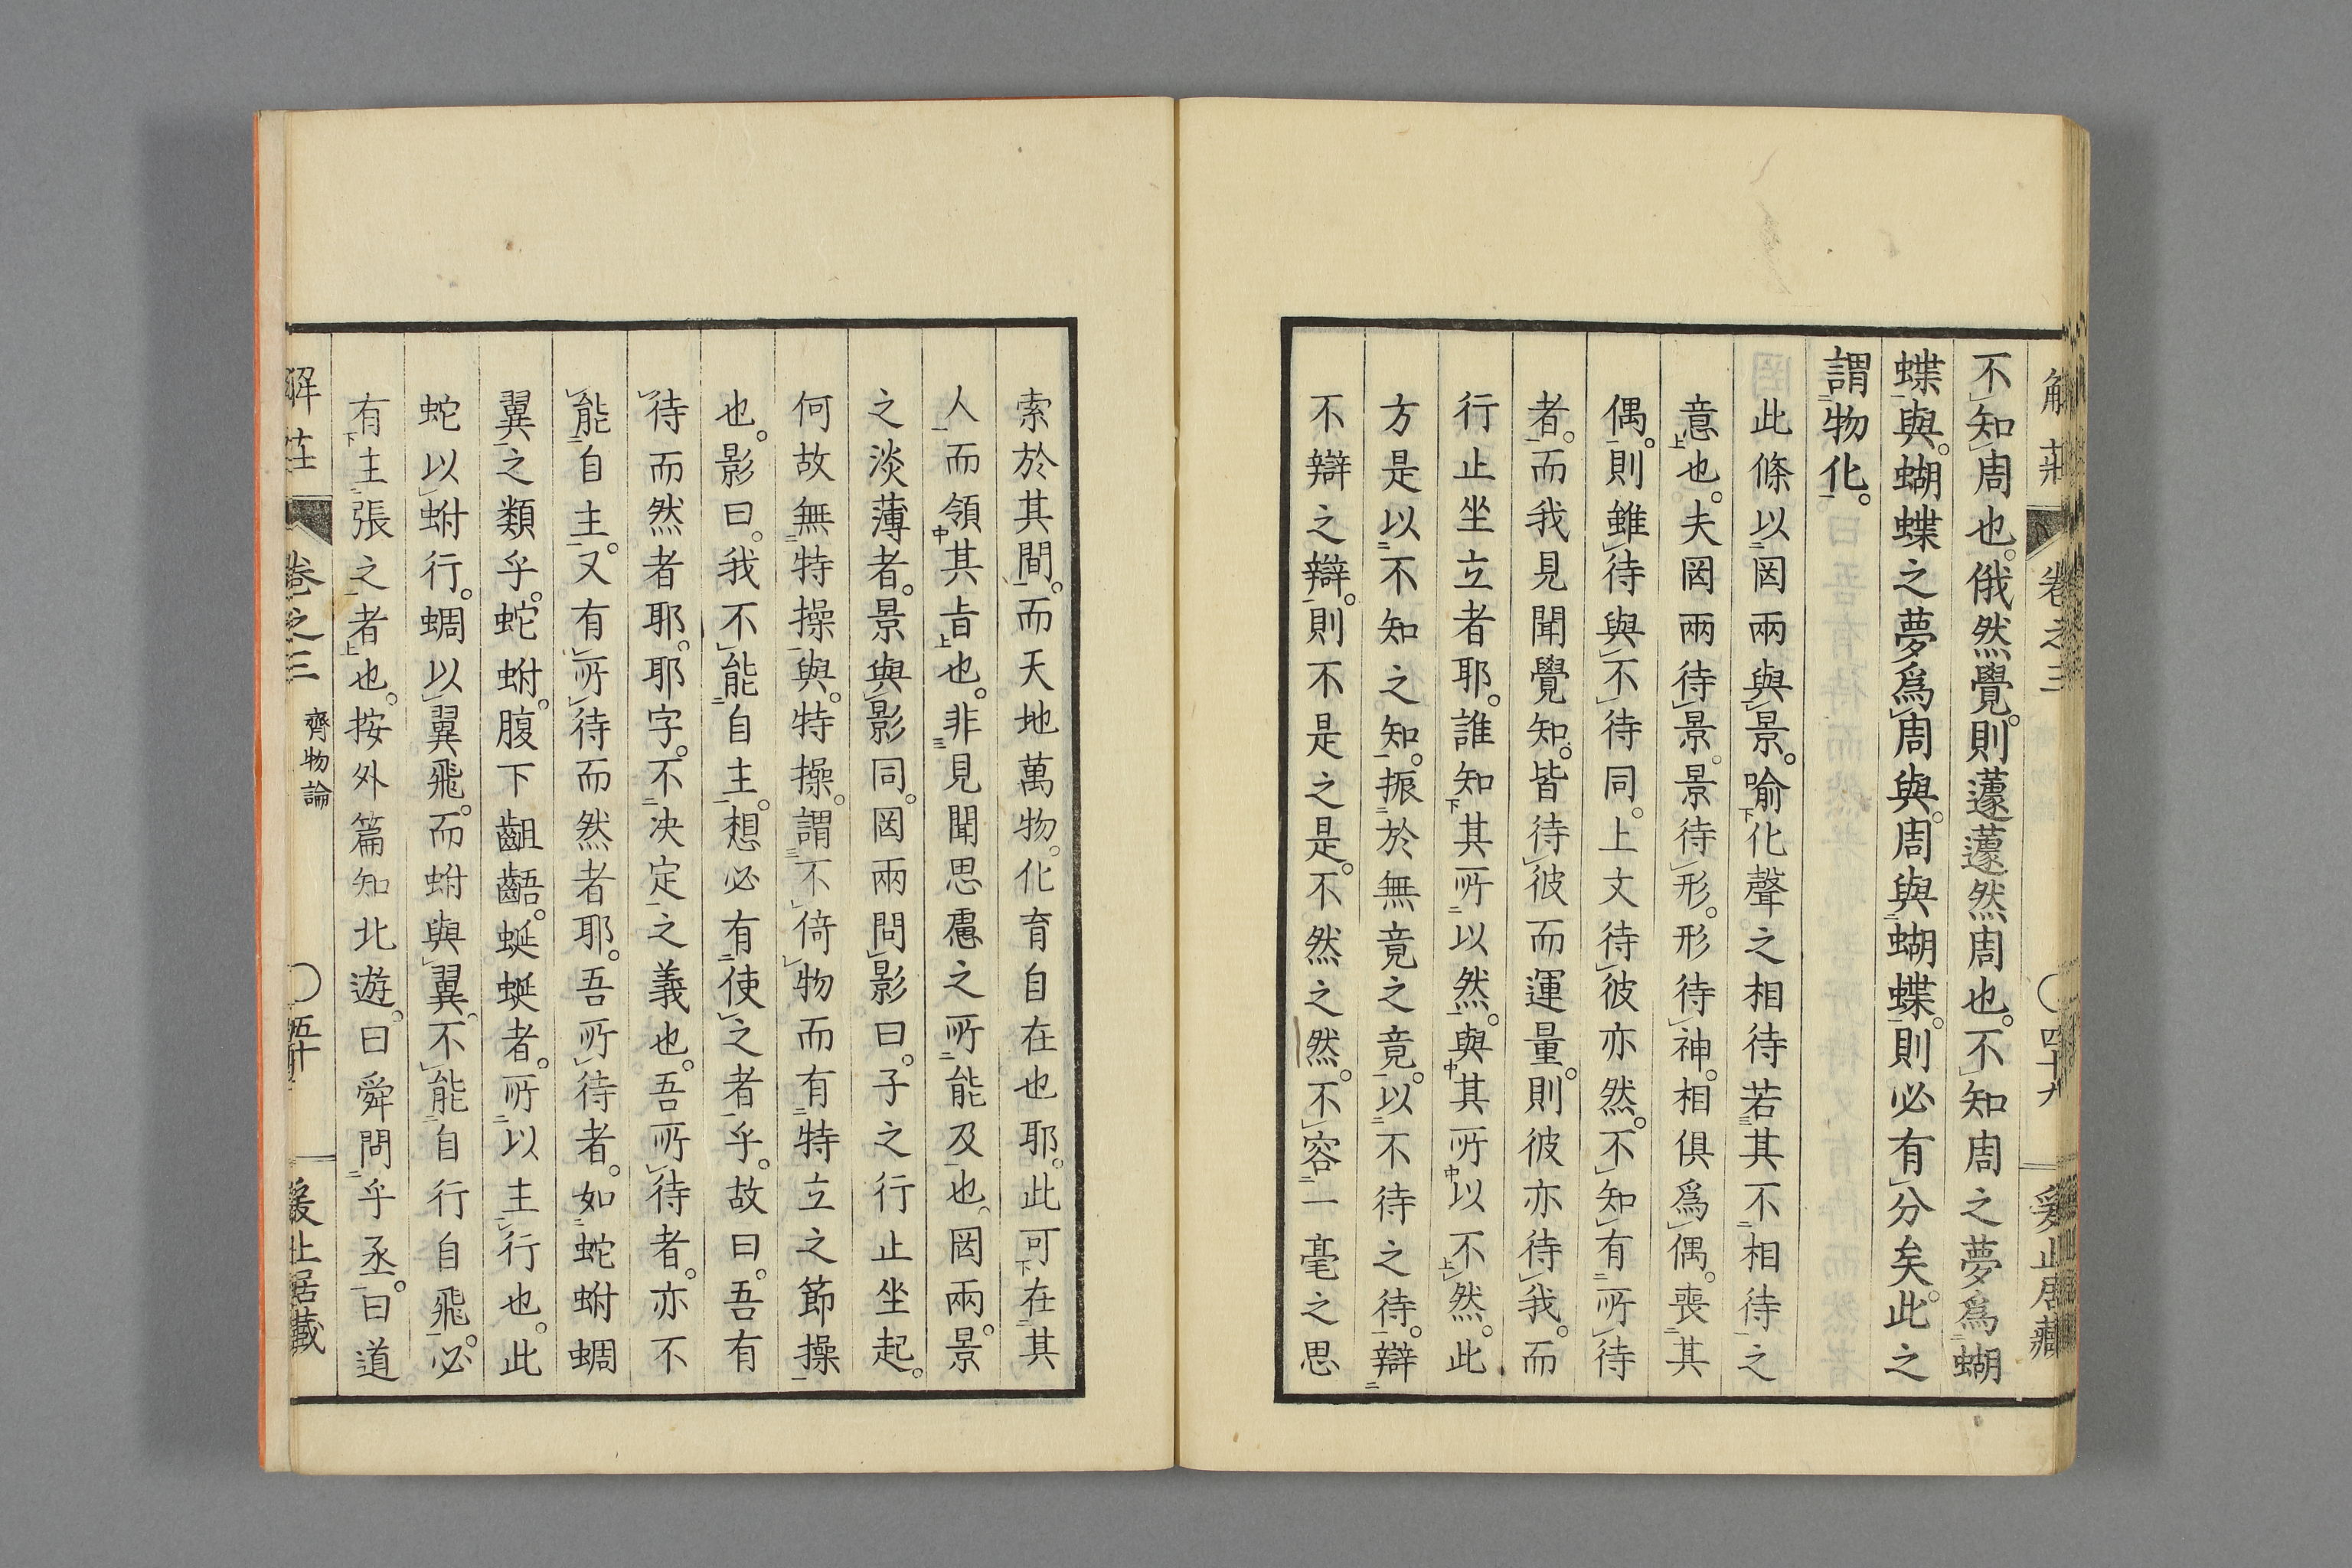 解莊 卷之三 ○四十九 爰止居藏
不知周也。俄然覺。則蘧蘧然周也。不知周之夢爲蝴
蝶與。蝴蝶之夢爲周與。周與蝴蝶。則必有分矣。此之
謂物化。
此條以罔兩與景。喻化聲之相待若其不相待之
意也。夫罔兩待景。景待形。形待神。相俱爲偶。喪其
偶。則雖待與不待同。上文待彼亦然。不知有所待
者。而我見聞覺知。皆待彼而運量。則彼亦待我。而
行止坐立者耶。誰知其所以然。與其所以不然。此
方是以不知之知。振於無竟之竟。以不待之待。辯
不辯之辯。則不是之是。不然之然。不容一毫之思
索於其間。而天地萬物。化育自在也耶。此可在其
人而領其旨也。非見聞思慮之所能及也。罔兩。景
之淡薄者。景與影同。罔兩問影曰。子之行止坐起。
何故無特操與。特操。謂不倚物而有特立之節操
也。影曰。我不能自主。想必有使之者乎。故曰。吾有
待而然者耶。耶字。不决定之義也。吾所待者。亦不
能自主。又有所待而然者耶。吾所待者。如蛇蚹蜩
翼之類乎。蛇蚹。腹下齟齬。蜒蜒者。所以主行也。此
蛇以蚹行。蜩以翼飛。而蚹與翼。不能自行自飛。必
有主張之者也。按外篇知北遊。曰舜問乎丞。曰道
解莊 卷之三 齊物論 ○五十 爰止居藏